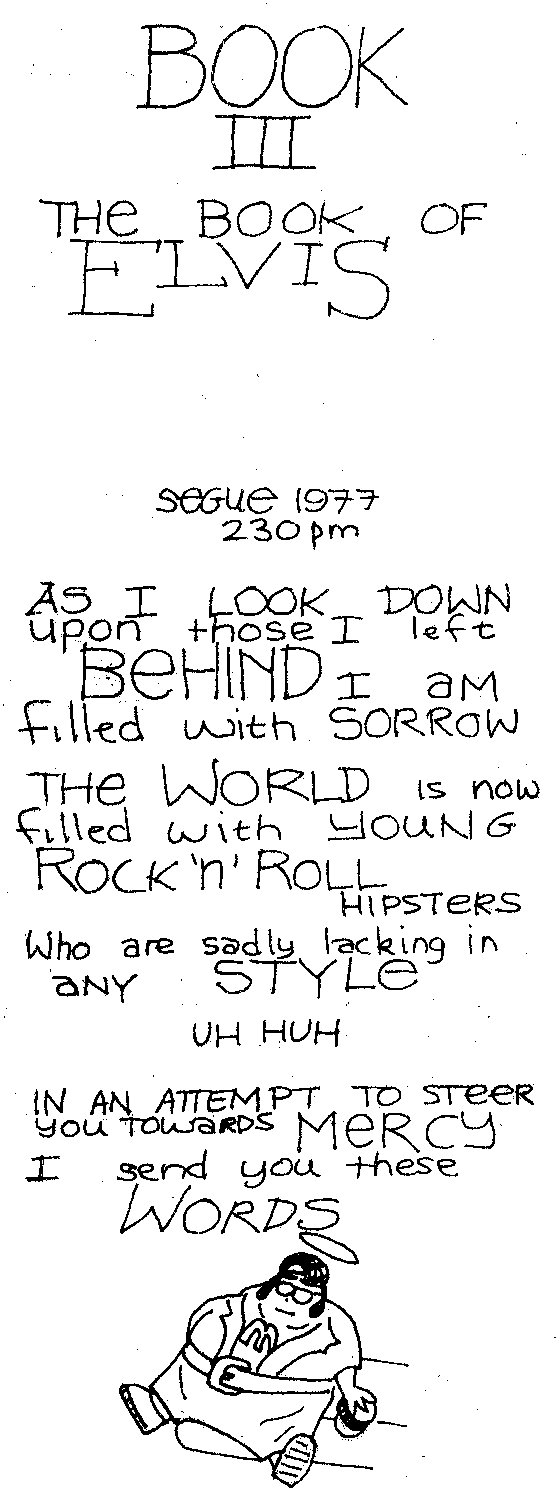 BOOK
III
THe BOOK OF
ELVIS
SeGue 1977
230pm
AS I LOOK DOWN
upon those I left
BeHIND I aM
filled with SORROW
THe WORLD is now
filled with YOUNG
ROCK 'n' ROLL
HIPSTeRS
Who are sadly lacking in
aNY STYLe
UH HUH
IN AN ATTEMPT TO STeeR
you TOWaRDS MeRCY
I send you these
WORDS